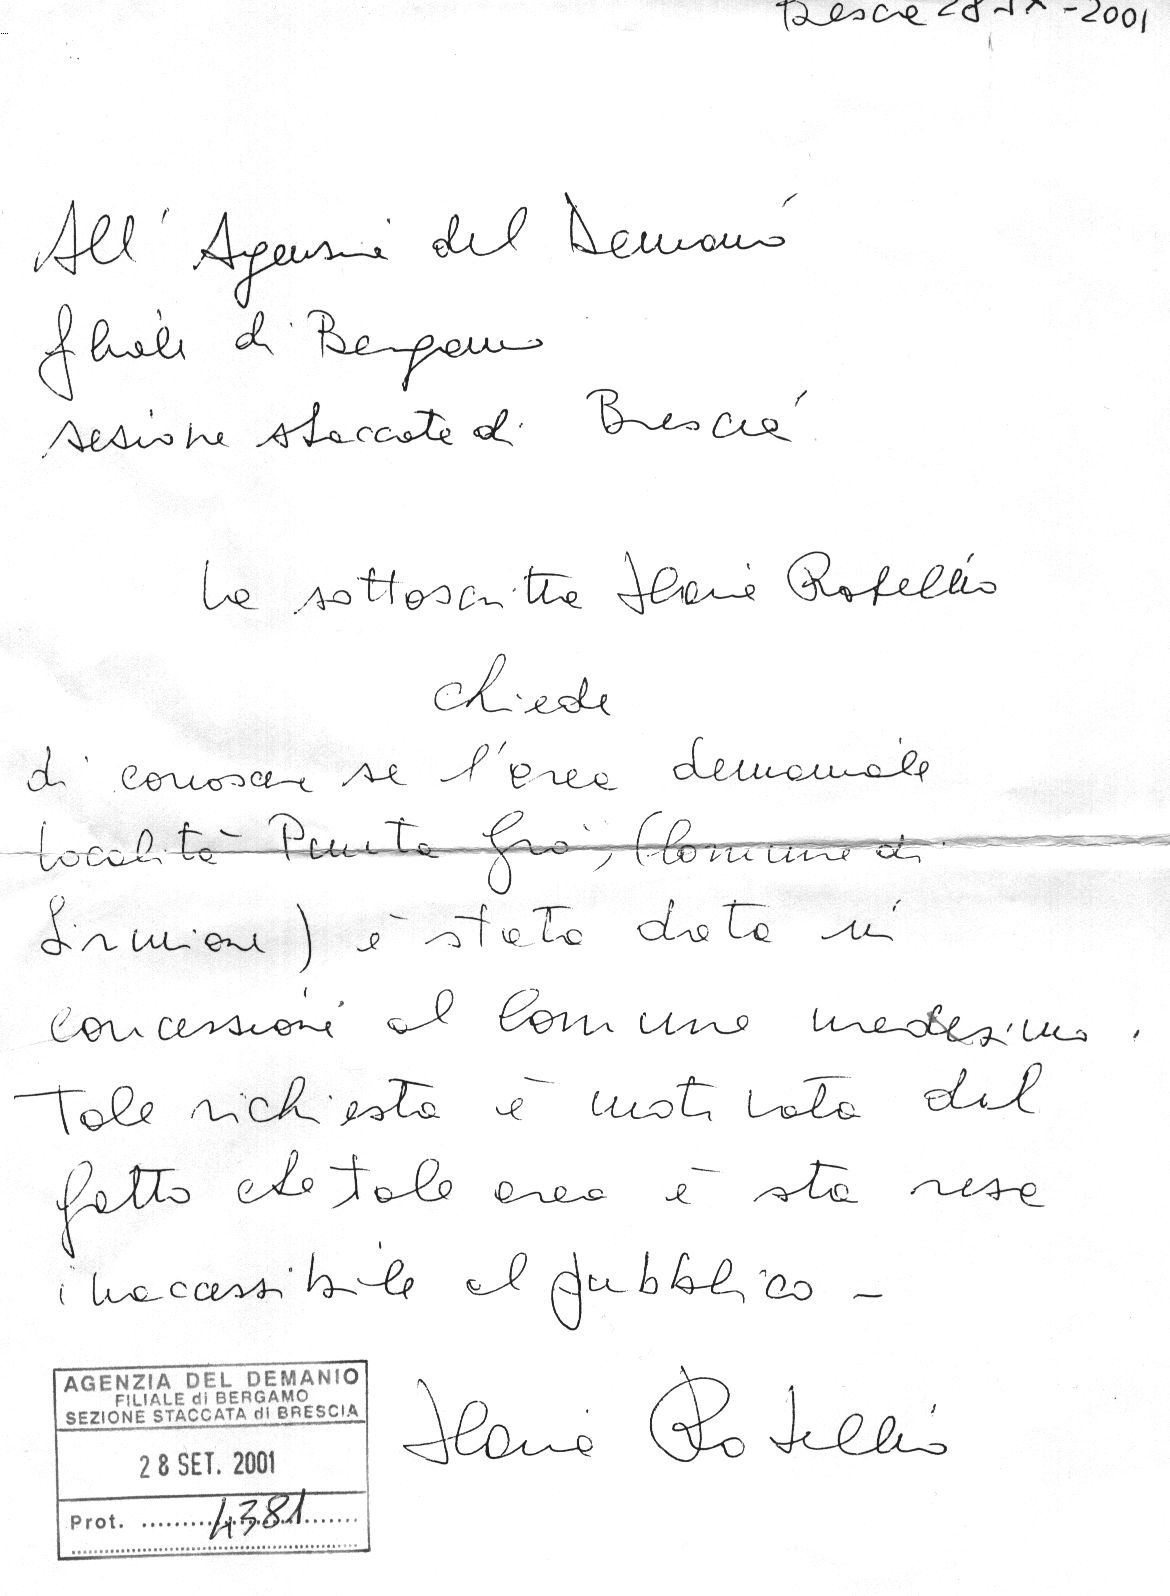 Brescia 28-IX-2001
All'Agenzia del Demanio
filiale di Bergamo
sezione staccata di Brescia
La sottoscritta Ilaria
chiede
di conoscere se l'area demaniale
località Punta Grò, (Comune di
Sirmione) è stata data in
concessione al Comune medesimo.
Tale richiesta è motivata dal
fatto che tale area è sta resa
inaccessibile al pubblico -
Ilaria
AGENZIA DEL DEMANIO
FILIALE di BERGAMO
SEZIONE STACCATA di BRESCIA
28 SET. 2001
Prot. 4381